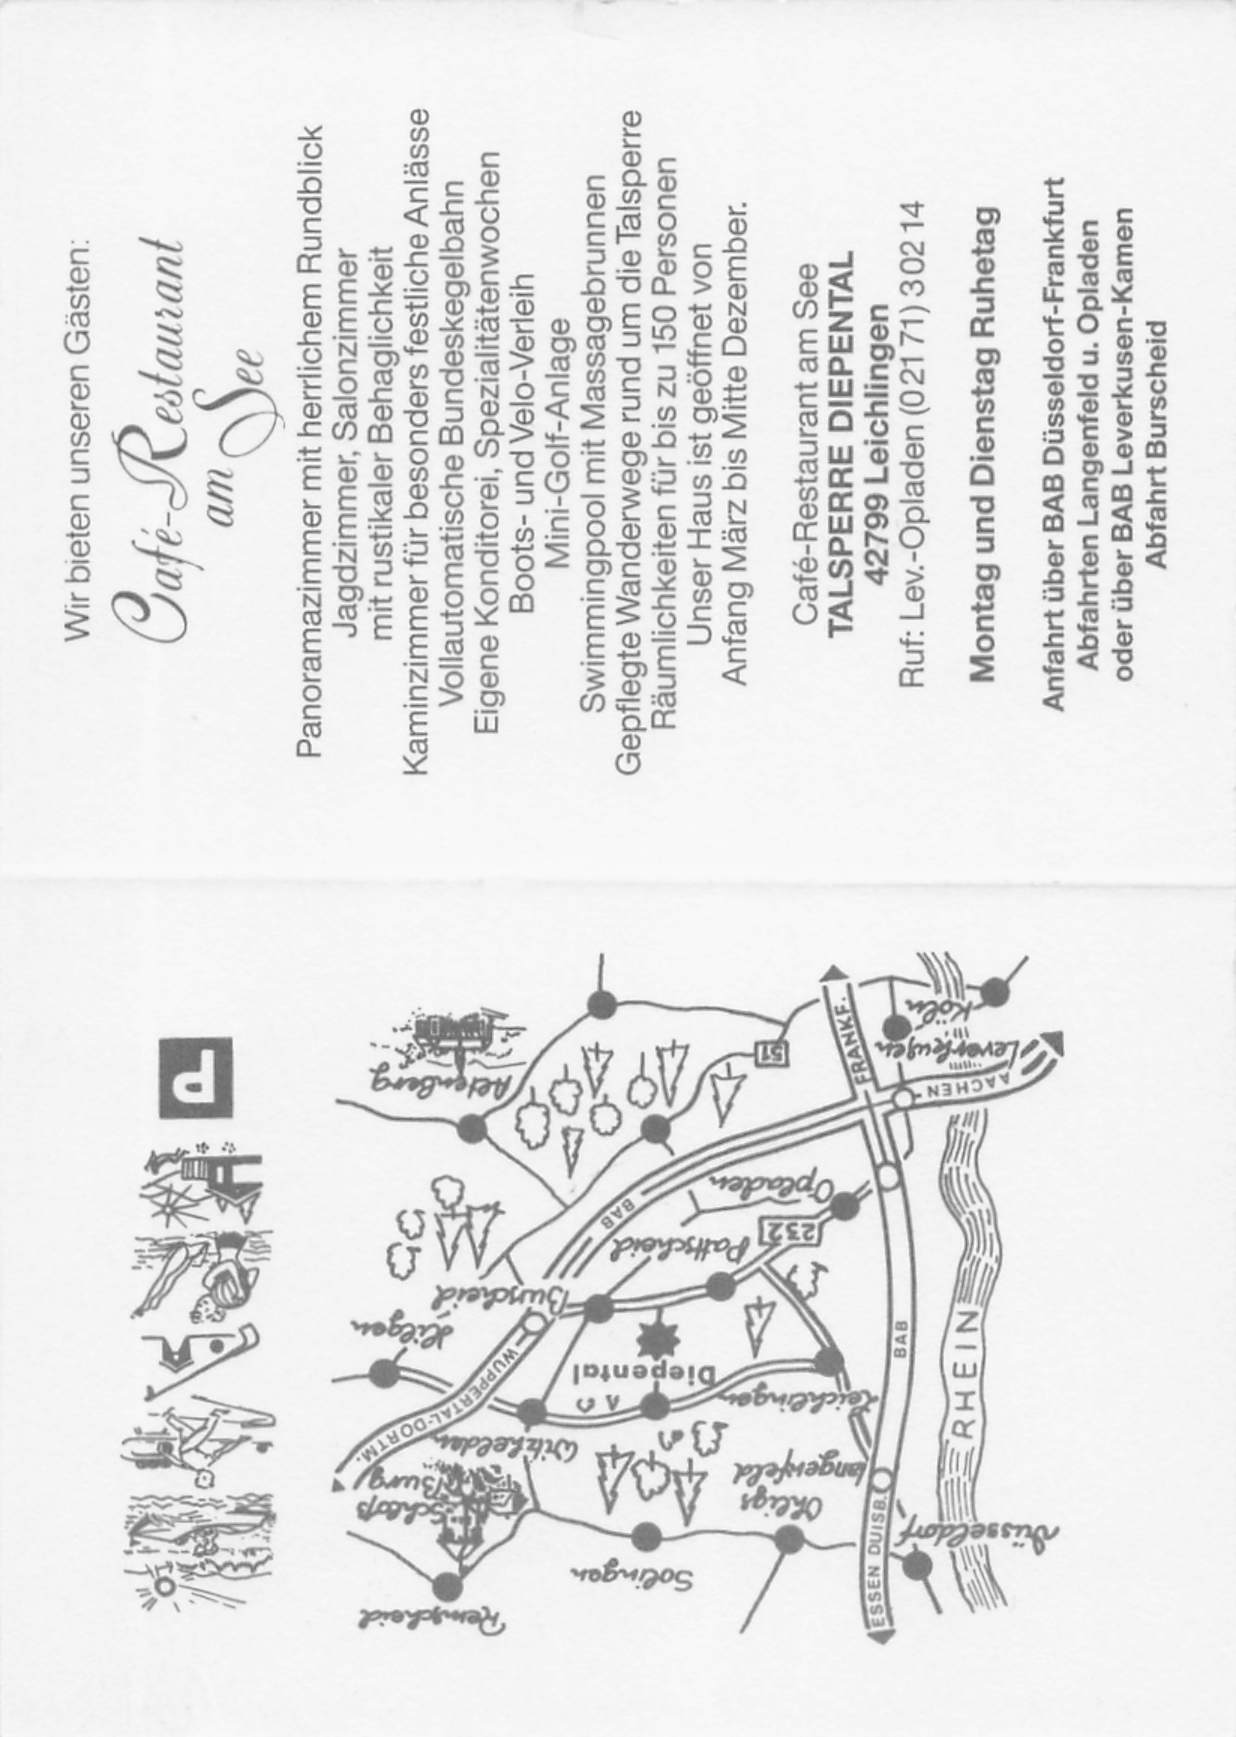 Wir bieten unseren Gästen:
Café-Restaurant
am
See
Panoramazimmer mit herrlichem Rundblick
Jagdzimmer, Salonzimmer
mit rustikaler Behaglichkeit
Kaminzimmer für besonders festliche Anlässe
Vollautomatische Bundeskegelbahn
Eigene Konditorei, Spezialitätenwochen
Boots- und Velo-Verleih
Mini-Golf-Anlage
Swimmingpool mit Massagebrunnen
Gepflegte Wanderwege rund um die Talsperre
Räumlichkeiten für bis zu 150 Personen
Unser Haus ist geöffnet von
Anfang März bis Mitte Dezember.
Café-Restaurant am See
TALSPERRE DIEPENTAL
42799 Leichlingen
Ruf: Lev.-Opladen (0 21 71) 3 02 14
Montag und Dienstag Ruhetag
Anfahrt über BAB Düsseldorf-Frankfurt
Abfahrten Langenfeld u. Opladen
oder über BAB Leverkusen-Kamen
Abfahrt Burscheid
P
Düsseldorf
RHEIN
Köln
Leverkusen
AACHEN
FRANKF.
ESSEN DUISB.
BAB
Langenfeld
Ohligs
Solingen
Leichlingen
Opladen
232
51
Pattscheid
Diepental
BAB
Burscheid
WUPPERTAL-DORTM.
Witzhelden
Schloß
Burg
Remscheid
Hilgen
Altenberg